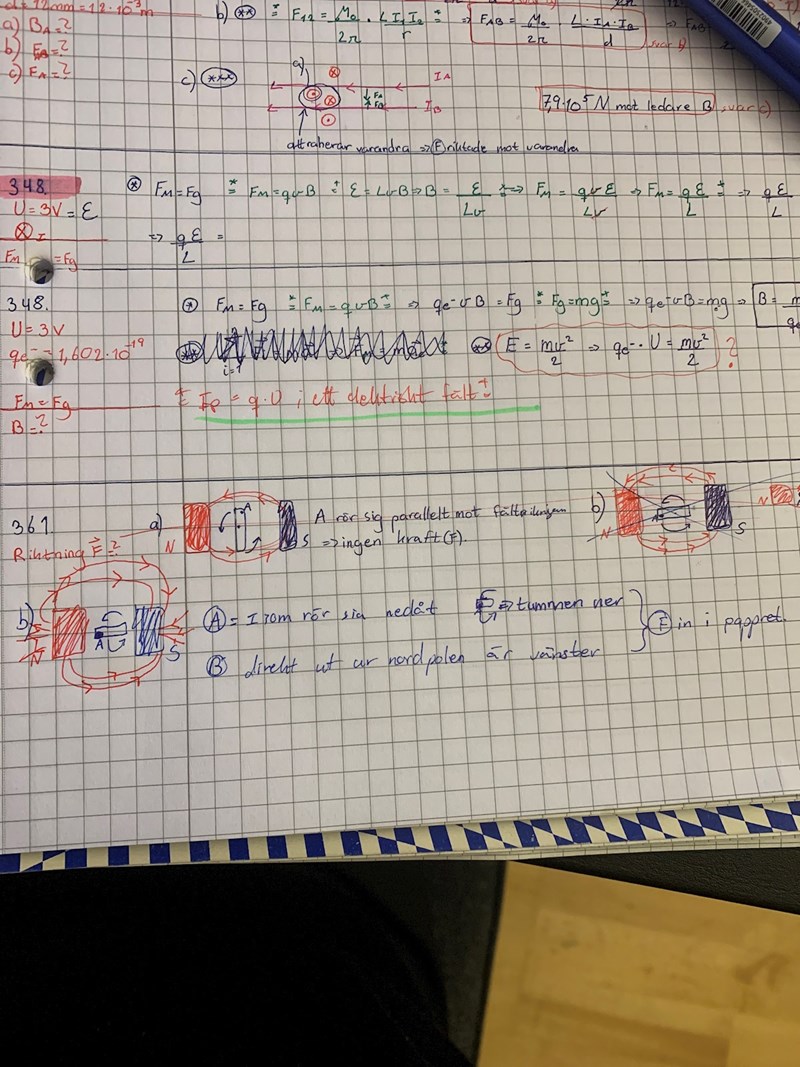 d = 12mm = 1,2·10⁻³m
a) B_A = ?
b) F_B = ?
c) F_A = ?
b) ** F₁₂ = μ₀/2π · L I₁ I₂/r ⇒ F_AB = μ₀/2π · L·I_A·I_B/d svar b) ⇒ F_AB
c) ***
a)
I_A
F_A
F_B
I_B
7,9·10⁵ N mot ledare B, svar c)
attraherar varandra ⇒ (F) riktade mot varandra
348.
U = 3V = Ɛ
⊗ I
F_m = F_g
* F_m = F_g F_m = qvB Ɛ = LvB ⇒ B = Ɛ/Lv ⇒ F_m = qvƐ/Lv ⇒ F_m = qƐ/L ⇒ qƐ/L
⇒ qƐ/L =
348.
U = 3V
q_e⁻ = 1,602·10⁻¹⁹
F_m = F_g
B = ?
* F_m = F_g F_m = qvB ⇒ q_e⁻vB = F_g F_g = mg ⇒ q_e⁻vB = mg ⇒ B = m
** E = mv²/2 ⇒ q_e⁻ · U = mv²/2 ?
i=1
= q·U i ett elektriskt fält
361
Riktning F ?
a)
N
A
S
A rör sig parallellt mot fältriktningen
⇒ ingen kraft (F).
b)
A
S
N
b)
N
A
S
(A) = I som rör sig nedåt ⇒ tummen ner
(B) direkt ut ur nordpolen är vänster
(F) in i pappret.